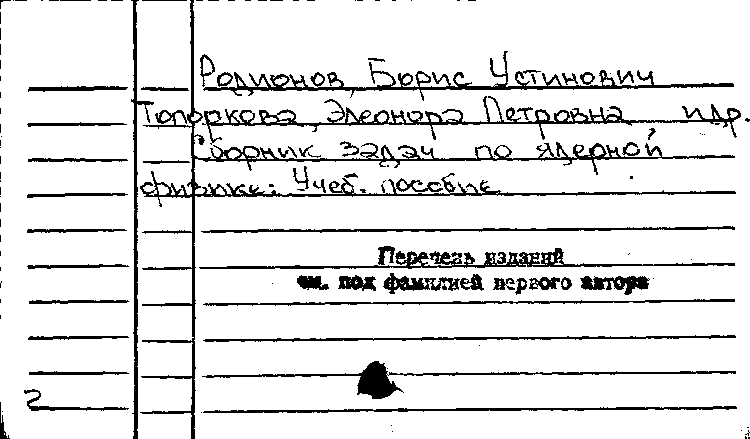 Родионов, Борис Устинович
Топоркова, Элеонора Петровна и др.
Сборник задач по ядерной
физике: Учеб. пособие
Перечень изданий
см. под фамилией первого автора
2